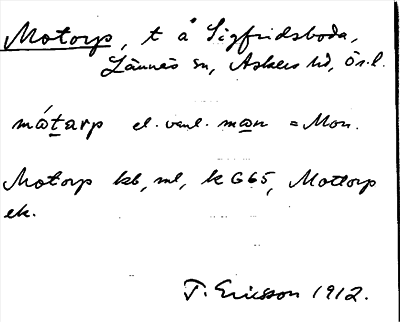 Motorp, t å Sigfridsboda,
Lännäs sn, Askers hd, Ör.l.
mátarp el. vanl. man = Mon.
Motorp kb, ml, k G65, Mottorp
ek.
T. Ericsson 1912.